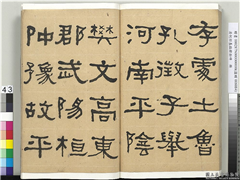 處士魯
孔徵子舉
河南平陰
樊文高東
郡武陽桓
仲豫故平
43